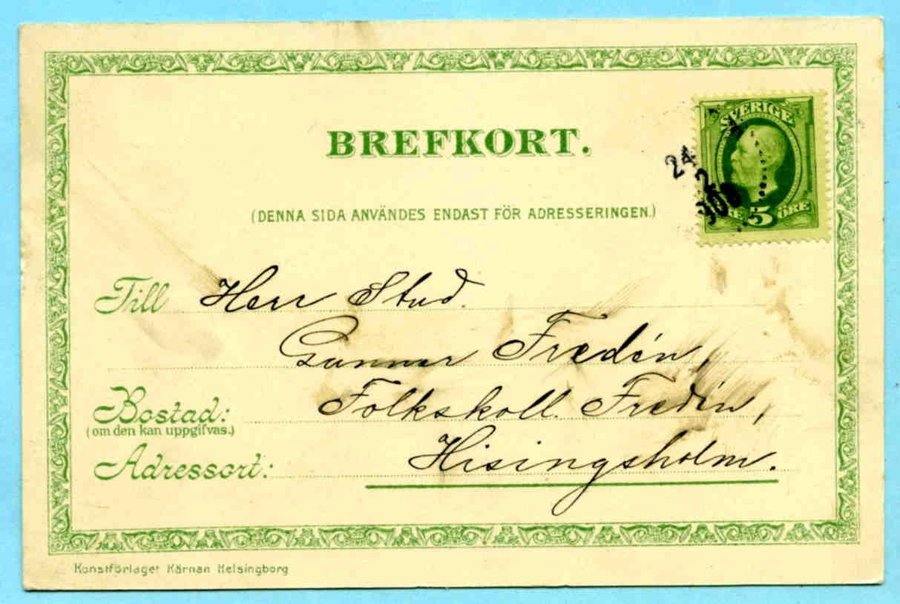 BREFKORT.
(DENNA SIDA ANVÄNDES ENDAST FÖR ADRESSERINGEN.)
SVERIGE
5 ÖRE
24
Till Herr Stud.
Gunnar Fredén,
Bostad: Folkskoll. Fredén,
(om den kan uppgifvas.)
Adressort: Hisingsholm.
Konstförlaget Kärnan Helsingborg